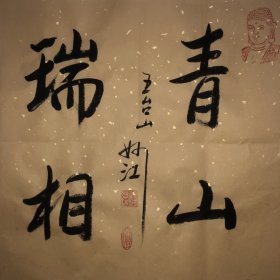 青山
瑞相
五台山
妙江